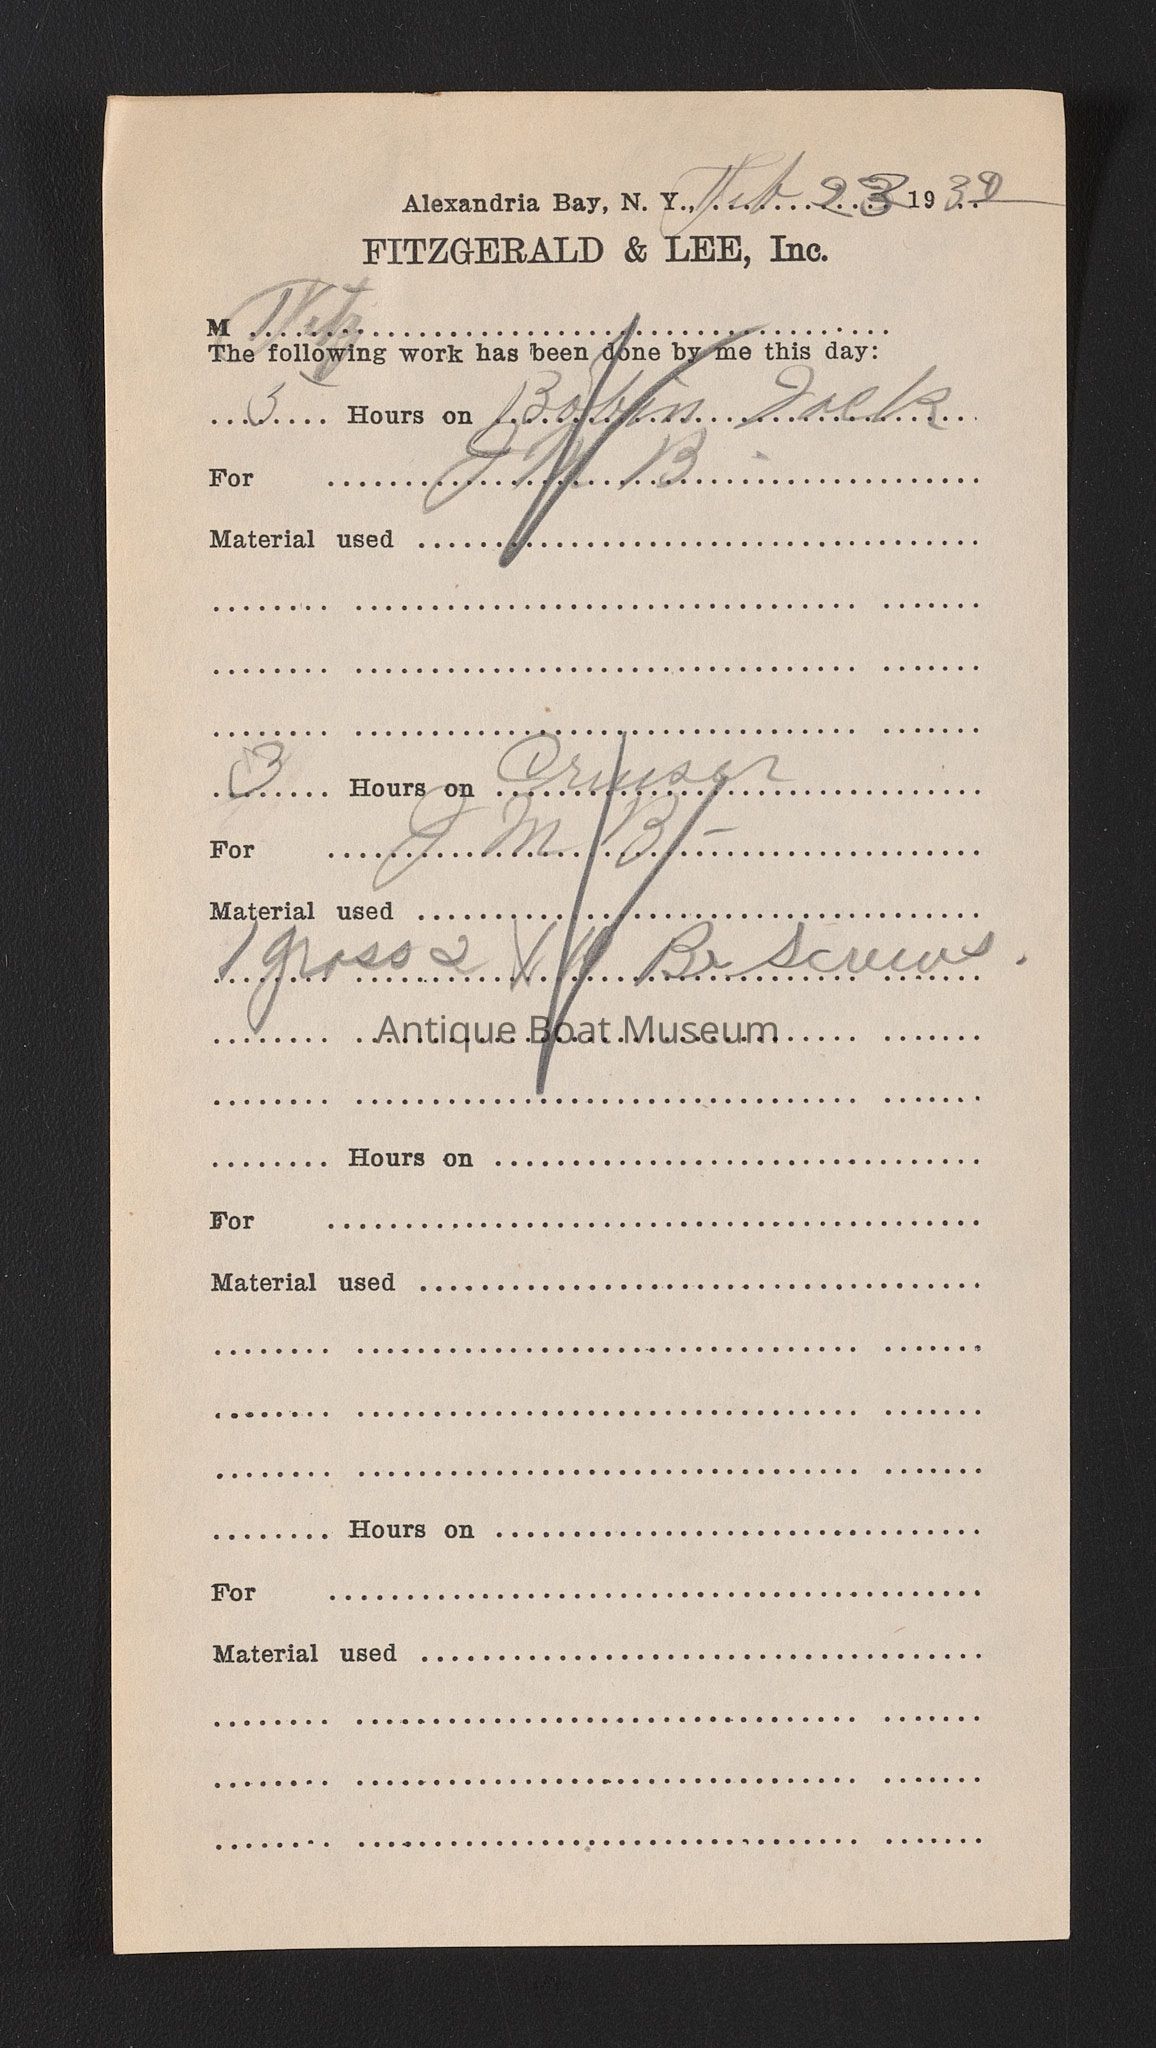 Alexandria Bay, N. Y., Feb 23 19 30
FITZGERALD & LEE, Inc.
M Fitz
The following work has been done by me this day:
Hours on Bobin Jack
For J M B -
Material used
3 Hours on Cruiser
For J M B -
Material used
1 gross 2 X 10 Br Screws.
Antique Boat Museum
Hours on
For
Material used
Hours on
For
Material used